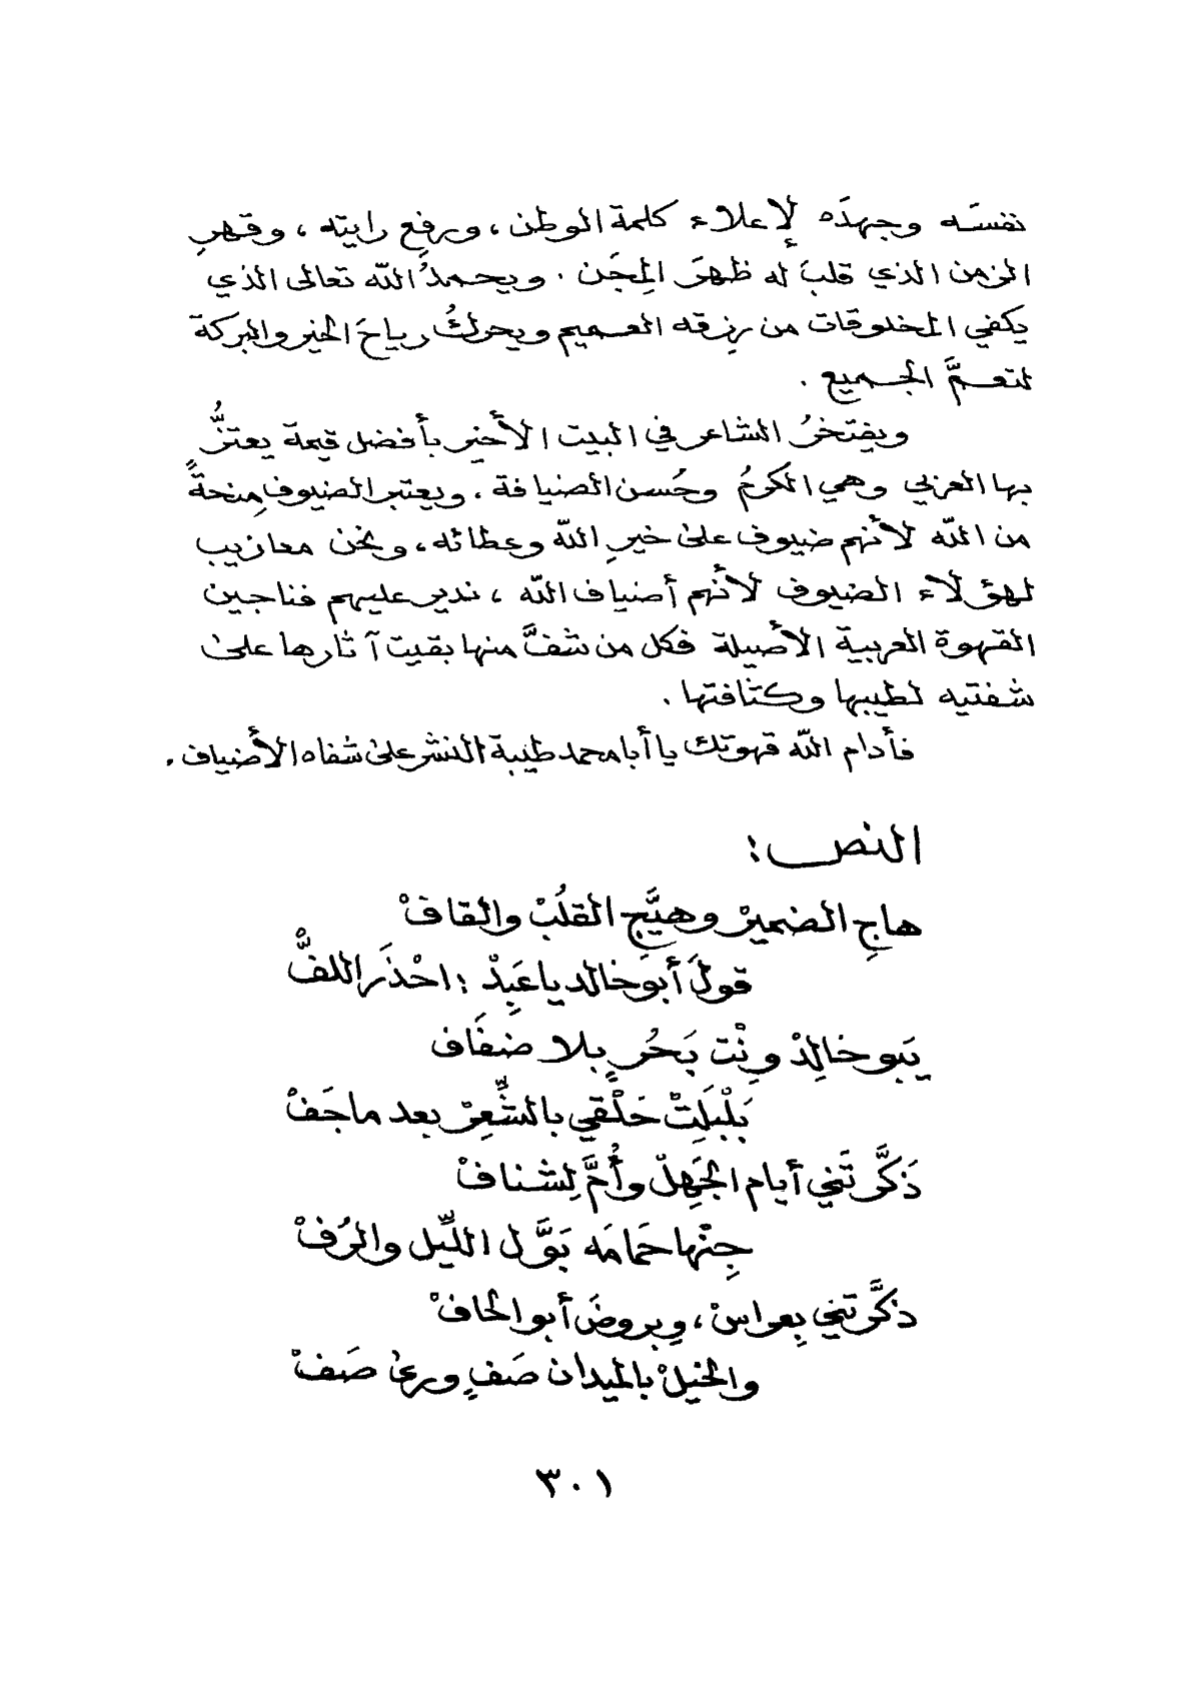 نفسَه وجهدَه لإعلاء كلمة الوطن، ورفع رايته، وقهرِ
الزمن الذي قلبَ له ظهرَ المِجَن. ويحمدُ الله تعالى الذي
يكفي المخلوقات من رزقه العميم ويحركُ رياحَ الخير والبركة
لتعمَّ الجميع.
ويفتخرُ الشاعر في البيت الأخير بأفضل قيمة يعتزُّ
بها العربي وهي الكرمُ وحُسن الضيافة، ويعتبر الضيوف مِنحةً
من الله لأنهم ضيوف على خيرِ الله وعطائه، ونحن معازيب
لهؤلاء الضيوف لأنهم أضياف الله، ندير عليهم فناجين
القهوة العربية الأصيلة فكل من شفَّ منها بقيت آثارها على
شفتيه لطيبها وكثافتها.
فأدام الله قهوتك يا أبا محمد طيبة النشر على شفاه الأضياف.
النص:
هاجِ الضميرْ وهيَّجِ القلُبْ والقافْ
قولَ أبوخالد ياعَبِدْ: احْذَر اللفُّ
يَبو خالِدْ وِنْت بَحُر بِلا ضفَاف
بَلْبَلَتْ حَلْقي بالشِّعِرْ بعد ماجَفْ
ذَكَّرتَني أيام الجَهِلْ وأُمَّ لِشنافْ
جِنْها حَمامَه بَوَّل اللّيل والرُفْ
ذكَّرتني بِعراسْ، وبروضَ أبو الحافْ
والخيلْ بالميدان صَفٍ ورىٰ صَفْ
٣٠١